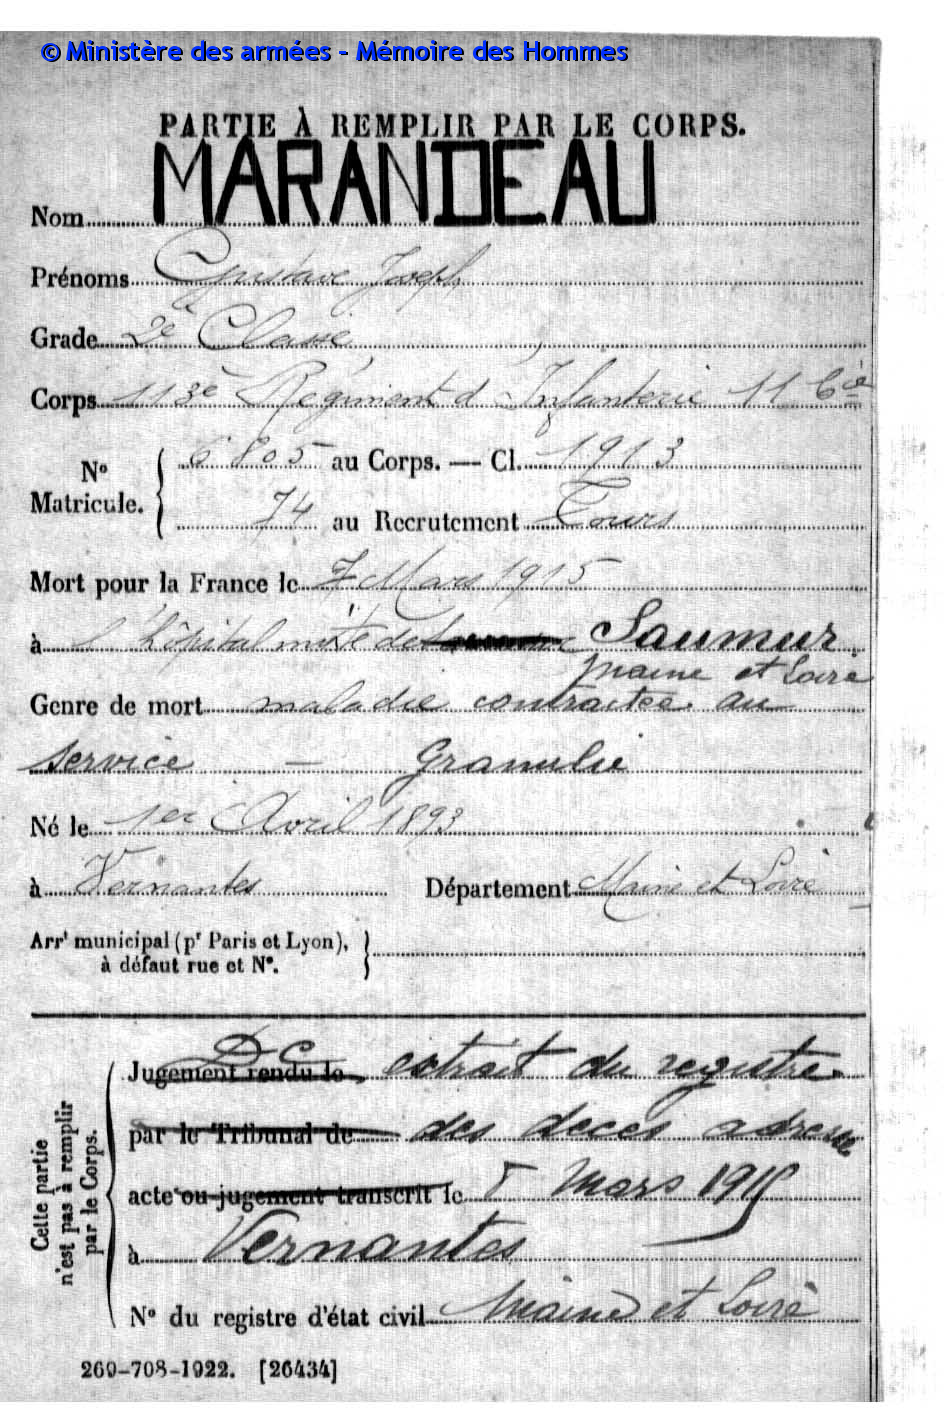 © Ministère des armées - Mémoire des Hommes
PARTIE À REMPLIR PAR LE CORPS.
Nom MARANDEAU
Prénoms Gustave Joseph
Grade 2e Classe
Corps 113e Régiment d'Infanterie 11 Cie
N° Matricule. 6805 au Corps. — Cl. 1913
74 au Recrutement Tours
Mort pour la France le 7 Mars 1915
à l'hôpital mixte de Saumur
Maine et Loire
Genre de mort maladie contractée au
service - Granulie
Né le 1er Avril 1893
à Vernantes Département Maine et Loire
Arrt municipal (pr Paris et Lyon),
à défaut rue et N°.
Cette partie n'est pas à remplir par le Corps.
DC
Jugement rendu le extrait du registre
par le Tribunal de des decès adresse
acte ou jugement transcrit le 8 Mars 1915
à Vernantes
N° du registre d'état civil Maine et Loire
269-708-1922. [26434]